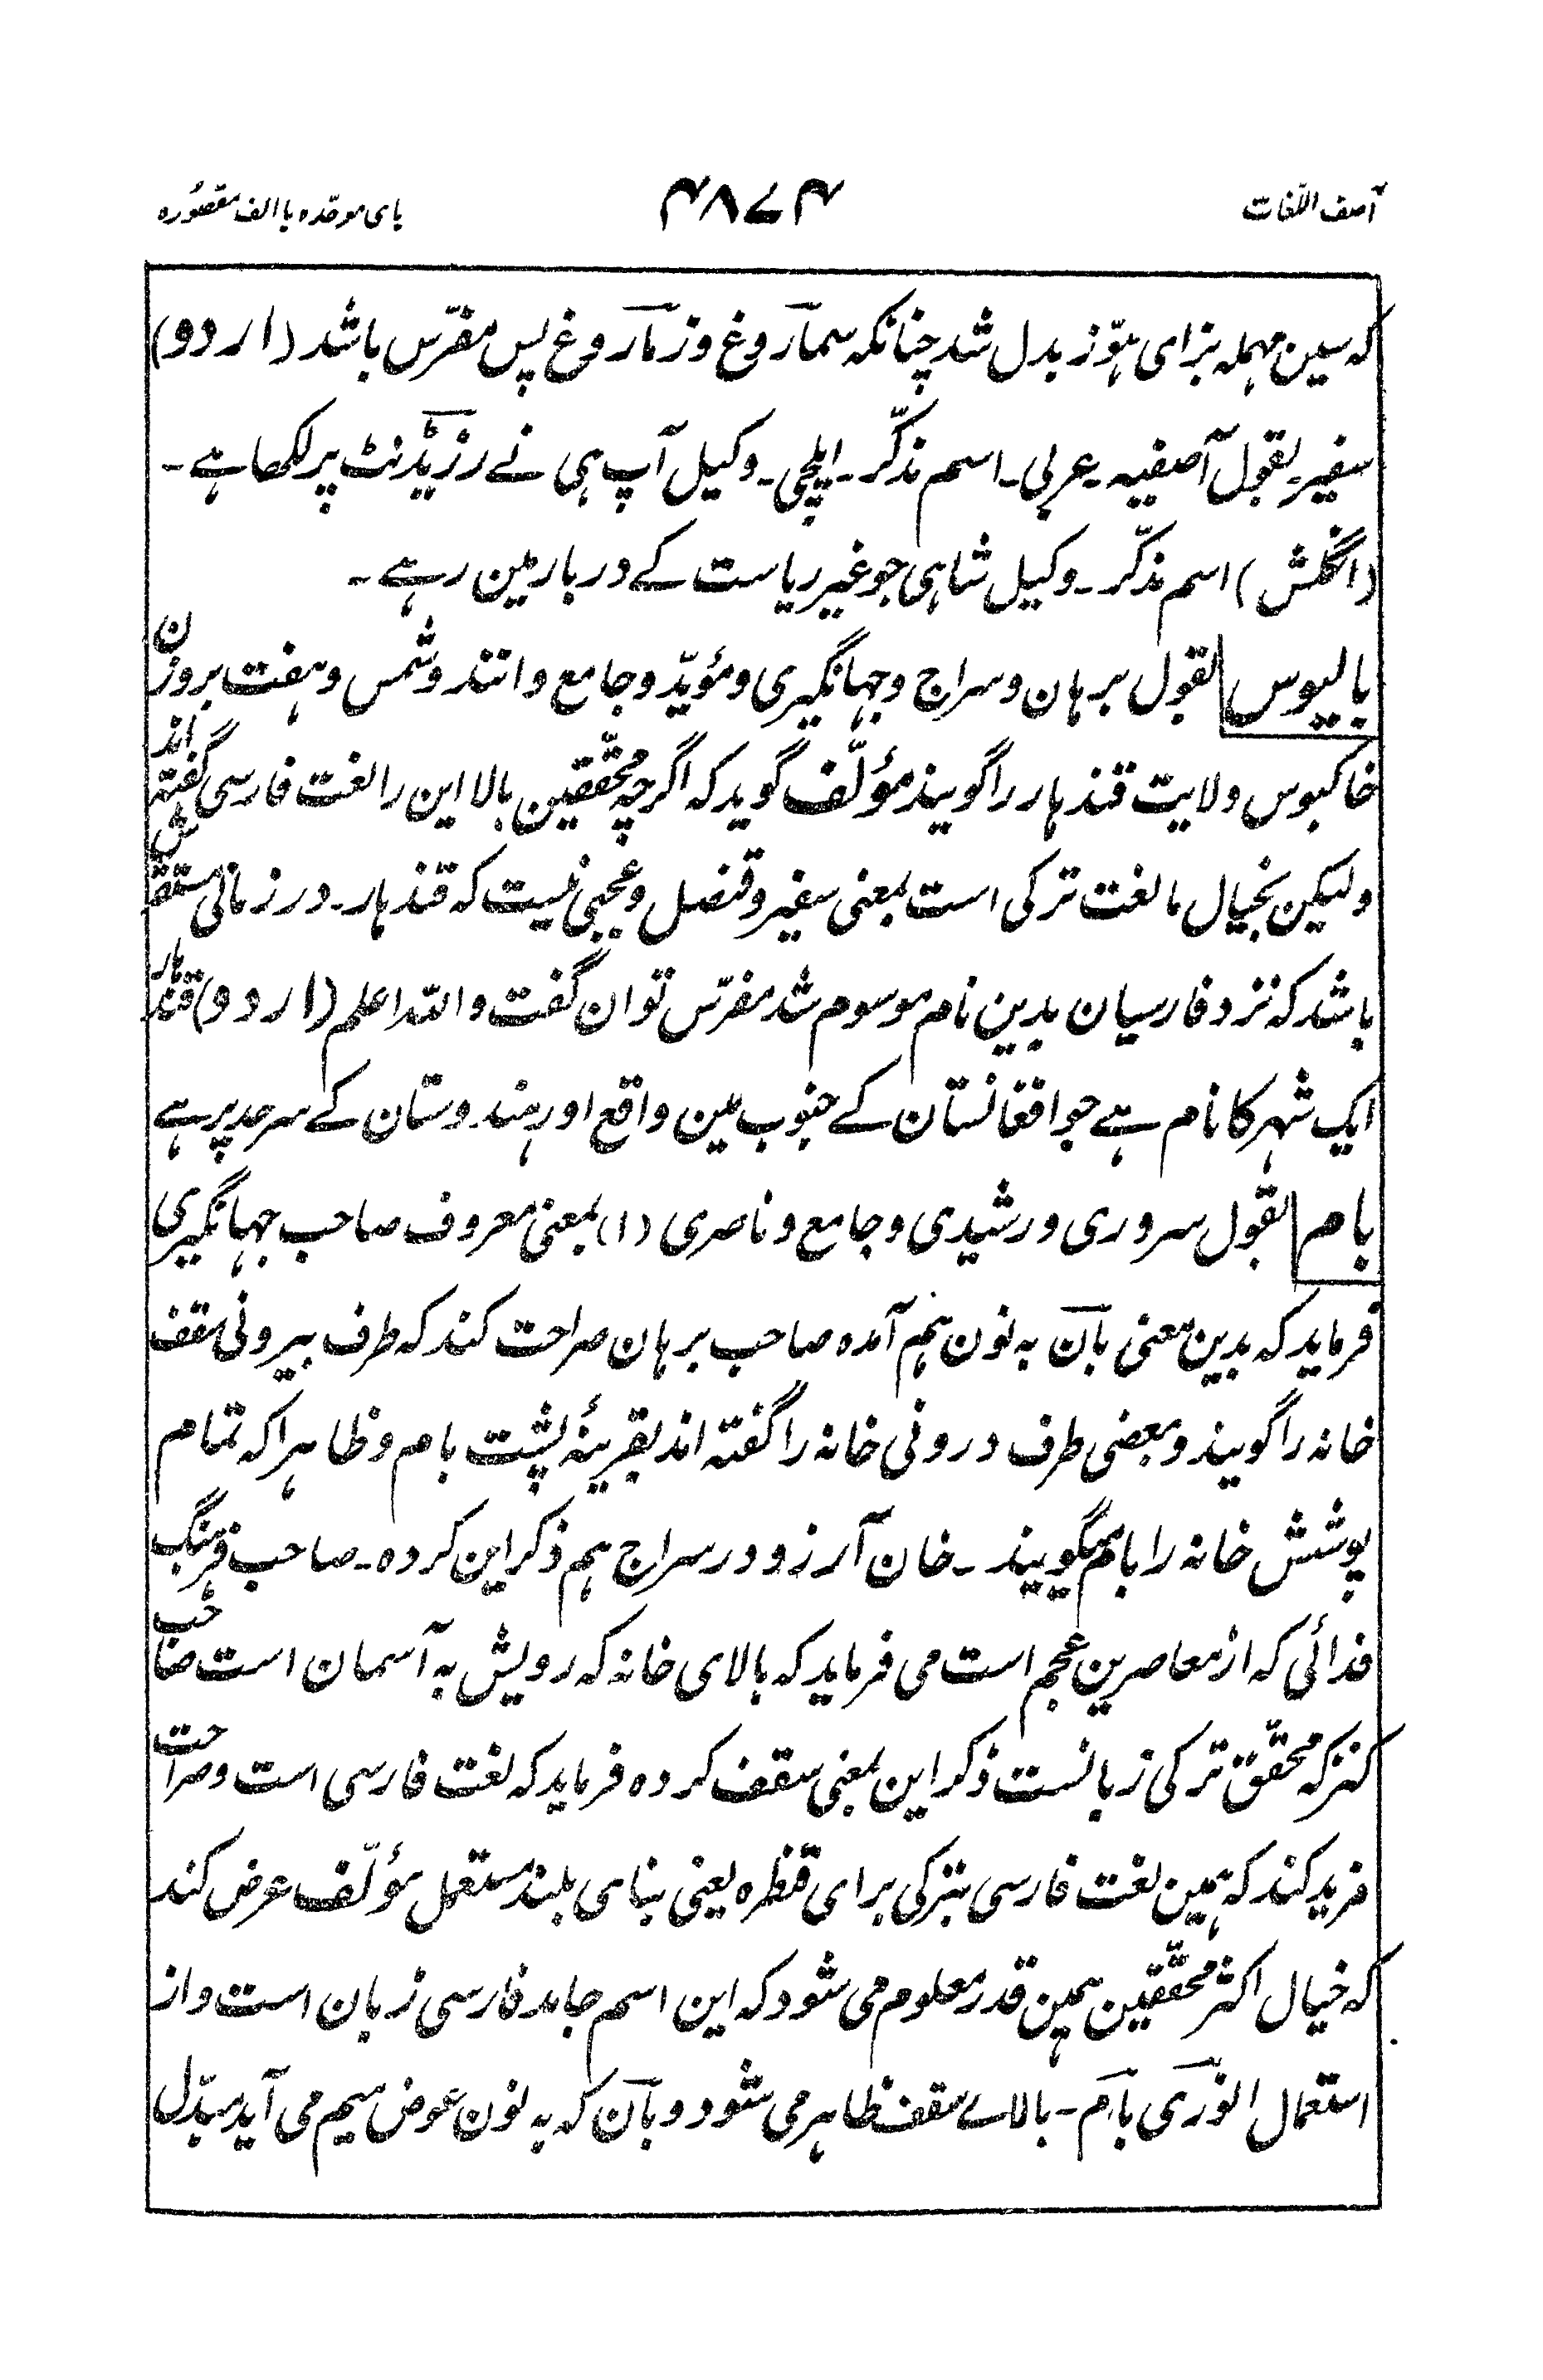 آصف اللّغات
۴۸۷۴
بای موحّده با الف مقصُوره
که سین مهمله بزای هوّز بدل شد چنانکه سماروغ و زماروغ پس مفرّس باشد (اردو)
سفیر بقول آصفیه ۔ عربی ۔ اسم مذکّر ۔ ایلچی ۔ وکیل آپ ہی نے رزیڈنٹ پر لکھا ہے ۔
(انگلش) اسم مذکّر ۔ وکیل شاہی جو غیر ریاست کے دربار مین رہے ۔
بالیوس بقول برهان و سراج و جهانگیری و مؤیّد و جامع و انند و شمس و هفت بروزن
خاکبوس ولایت قندهار را گویند مؤلّف گوید که اگرچه محقّقین بالا این را لغت فارسی گفته اند
ولیکن بخیال ما لغت ترکی است بمعنی سفیر و قنصل و عجبی نیست که قندهار ۔ در زمانی مستقرش
باشد که نزد فارسیان بدین نام موسوم شد مفرّس توان گفت و اللہ اعلم (اردو) قندهار
ایک شہر کا نام ہے جو افغانستان کے جنوب مین واقع اور ہندوستان کے سرحد پر ہے
بام بقول سروری و رشیدی و جامع و ناصری (۱) بمعنی معروف صاحب جهانگیری
فرماید که بدین معنی بان به نون هم آمده صاحب برهان صراحت کند که طرف بیرونی سقف
خانه را گویند و بعضی طرف درونی خانه را گفته اند بقرینۂ پشت بام و ظاهرا که تمام
پوشش خانه را بام میگویند ۔ خان آرزو در سراج هم ذکر این کرده ۔ صاحب فرهنگ
فدائی که از معاصرین عجم است می فرماید که بالای خانه که رویش به آسمان است صاحب
کنز که محقّق ترکی زبانست ذکر این بمعنی سقف کرده فرماید که لغت فارسی است و صراحت
مزید کند که همین لغت فارسی بترکی برای قنطره یعنی بنای بلند مستعمل مؤلّف عرض کند
که خیال اکثر محقّقین همین قدر معلوم می شود که این اسم جامد فارسی زبان است و از
استعمال انوری بام ۔ بالاے سقف ظاهر می شود و بان که به نون عوض میم می آید مبدّل